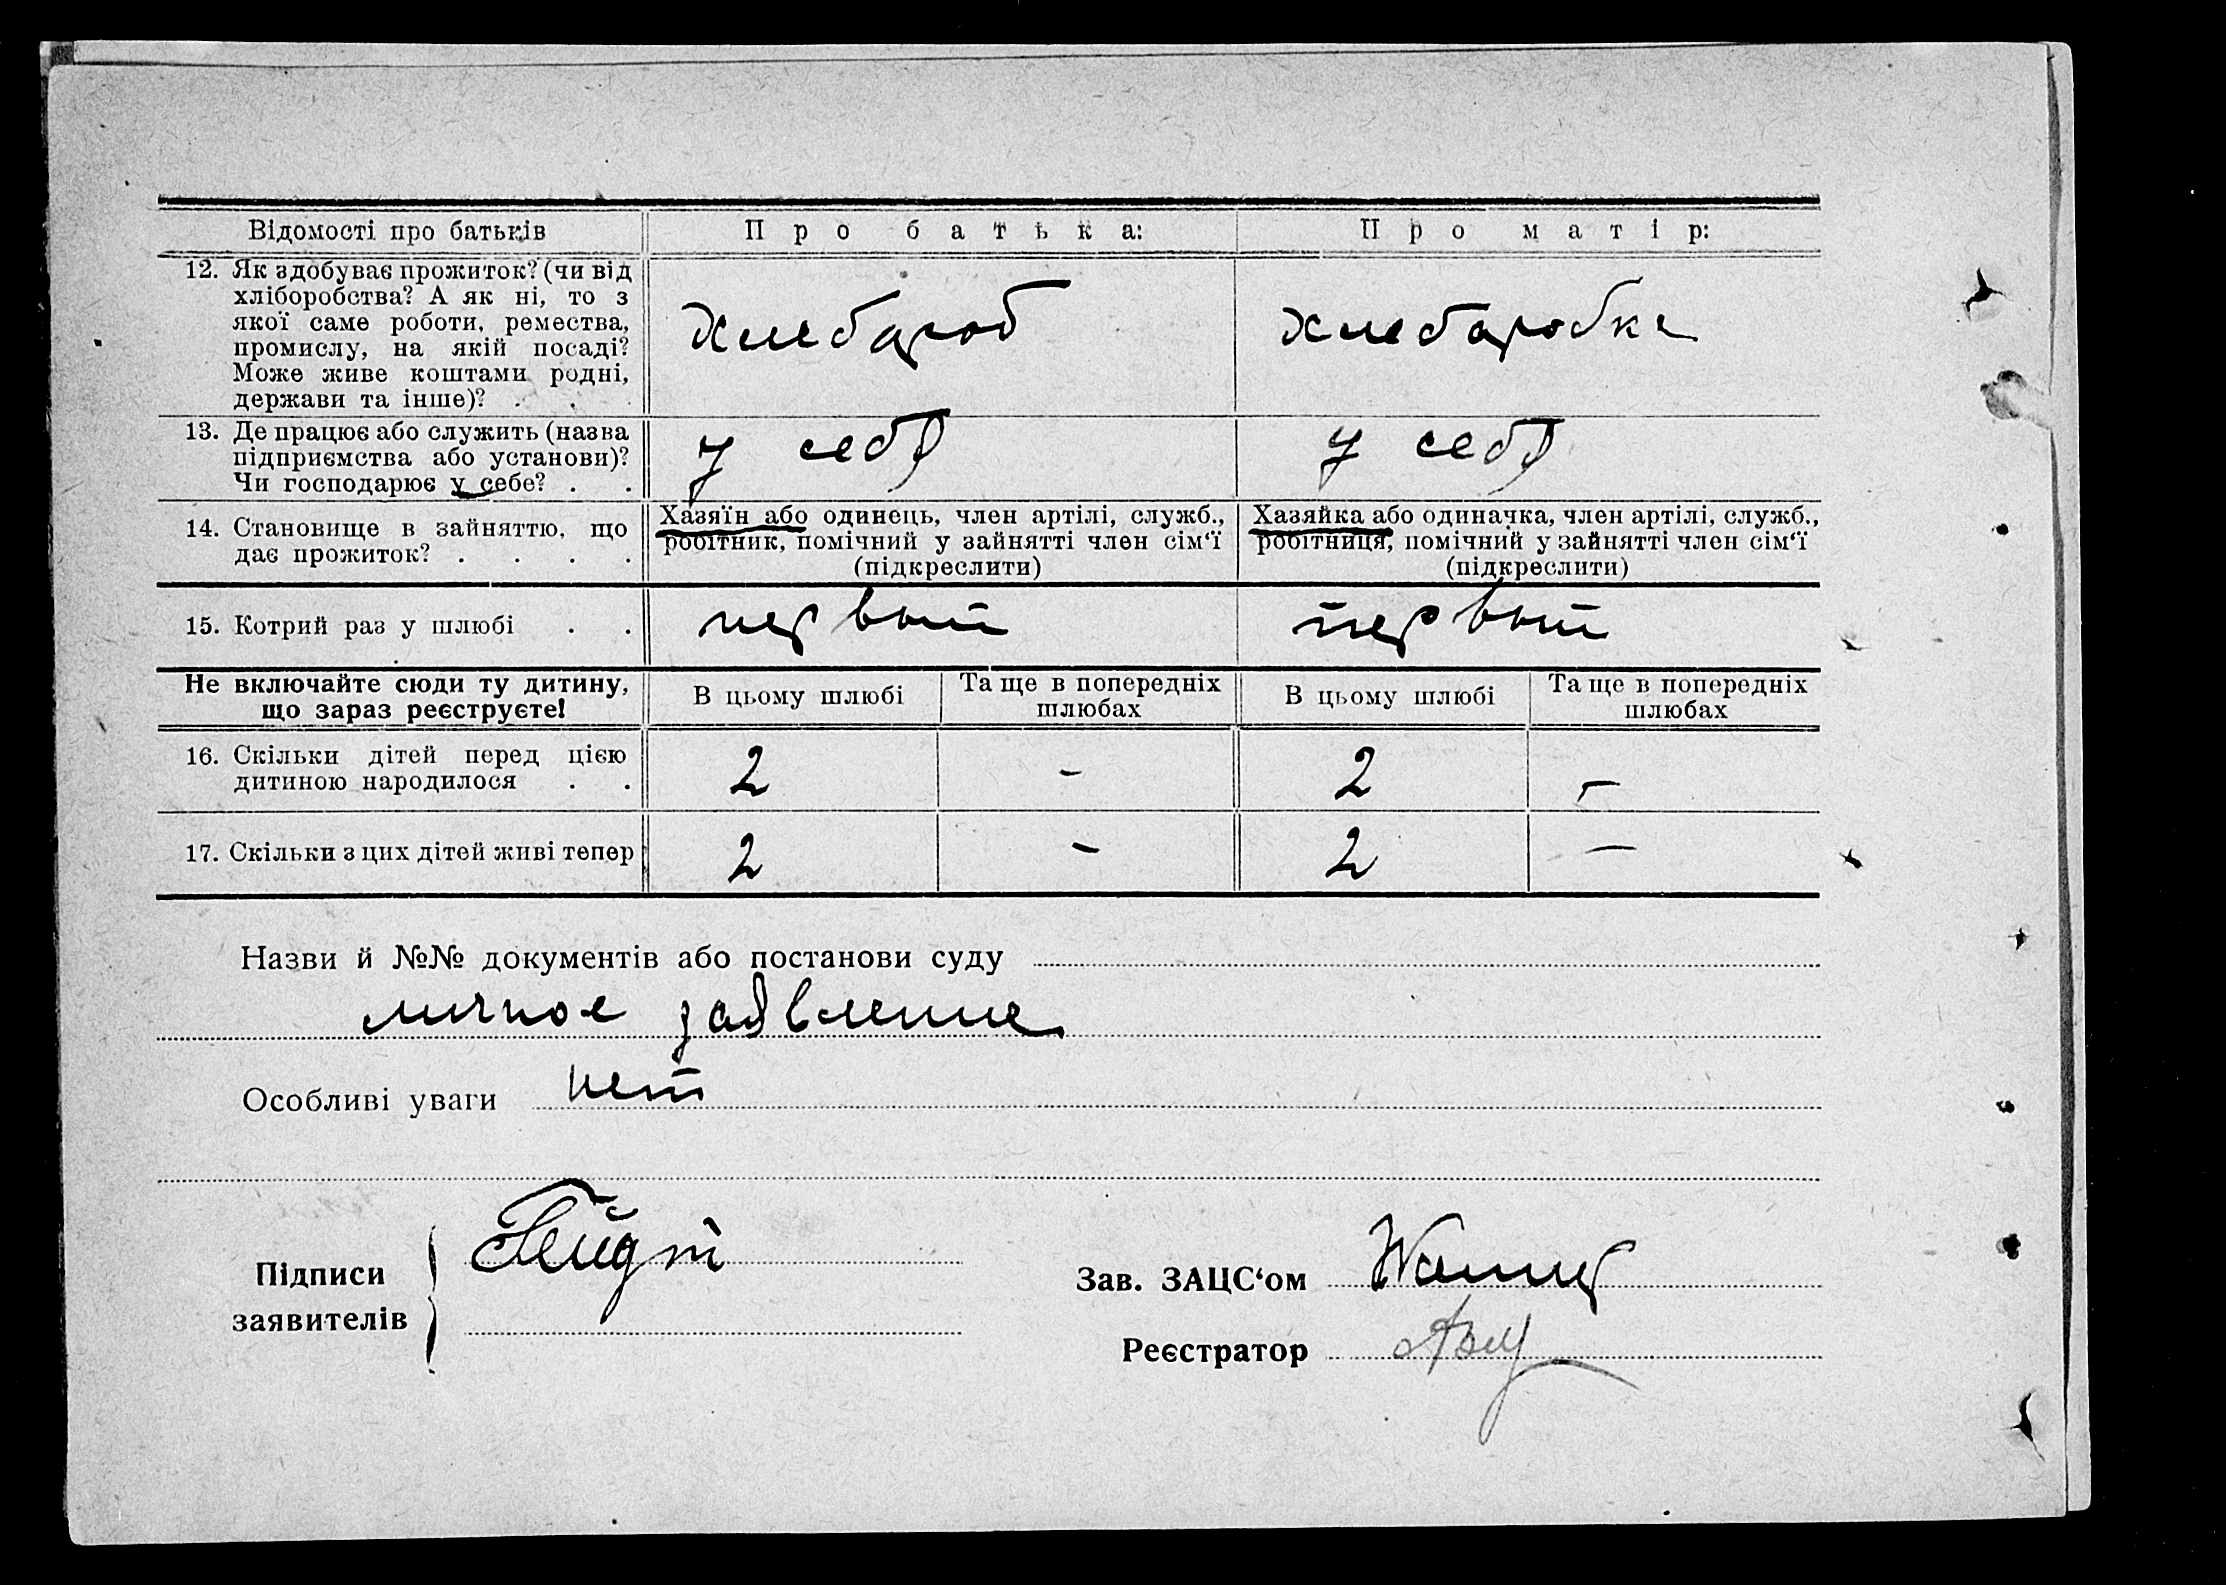 Відомості про батьків	Про батька:	Про матір:
12. Як здобуває прожиток? (чи від
хліборобства? А як ні, то з
якої саме роботи, ремества,
промислу, на якій посаді?
Може живе коштами родні,
держави та інше)? . .
хлебароб	хлебаробка
13. Де працює або служить (назва
підприємства або установи)?
Чи господарює у себе? . .
у себя	у себя
14. Становище в зайняттю, що
дає прожиток? . . . .
Хазяїн або одинець, член артілі, служб.,
робітник, помічний у зайнятті член сім‘ї
(підкреслити)
Хазяйка або одиначка, член артілі, служб.,
робітниця, помічний у зайнятті член сім‘ї
(підкреслити)
15. Котрий раз у шлюбі . .	первый	первый
Не включайте сюди ту дитину,
що зараз реєструєте!
В цьому шлюбі	Та ще в попередніх
шлюбах
В цьому шлюбі	Та ще в попередніх
шлюбах
16. Скільки дітей перед цією
дитиною народилося . .
2	-	2	-
17. Скільки з цих дітей живі тепер	2	-	2	-
Назви й №№ документів або постанови суду
личное заявление
Особливі уваги нет
Підписи
заявителів
Зав. ЗАЦС‘ом
Реєстратор